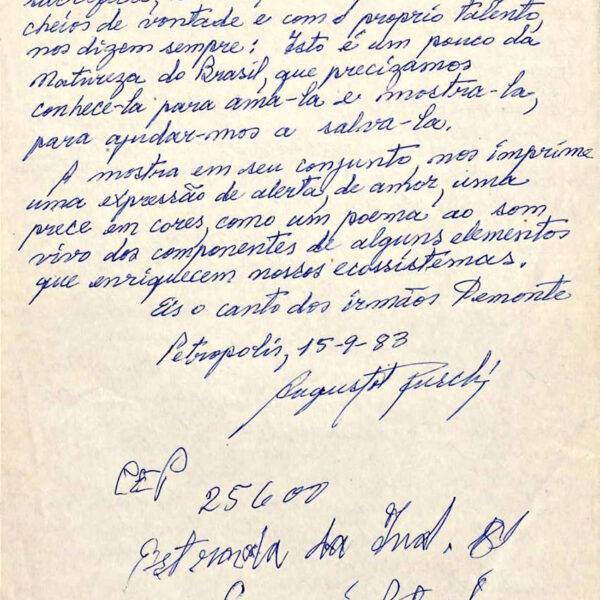 cheios de vontade e com o proprio talento,
nos dizem sempre: Isto é um pouco da
Natureza do Brasil, que precizamos
conhece-la para ama-la e mostra-la,
para ajudar-mos a salva-la.
A mostra em seu conjunto, nos imprime
uma expressão de alerta, de amor, uma
prece em cores, como um poema ao som
vivo dos componentes de alguns elementos
que enriquecem nossos ecossistemas.
Eis o canto dos irmãos Demonte
Petropolis, 15-9-83
Augusto Ruschi
CEP
25600
Estrada da